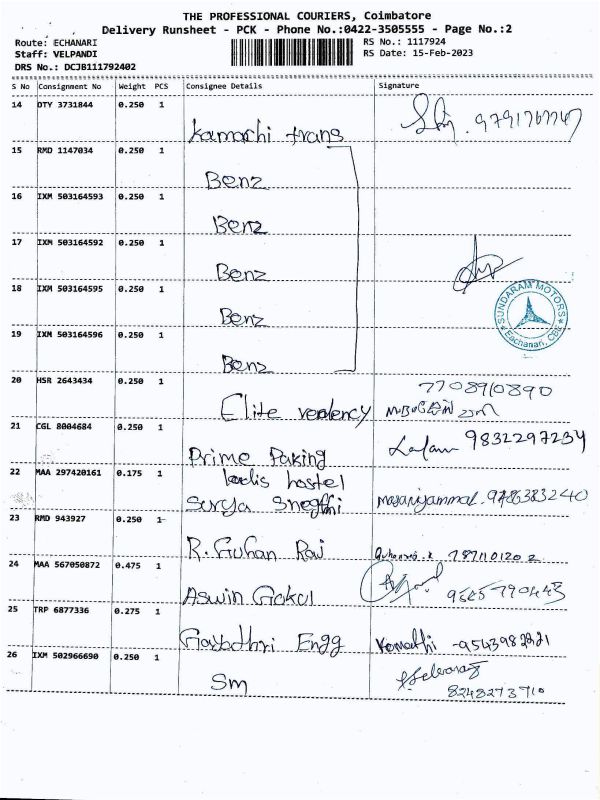 THE PROFESSIONAL COURIERS, Coimbatore
Delivery Runsheet - PCK - Phone No.:0422-3505555 - Page No.:2
Route: ECHANARI
RS No.: 1117924
Staff: VELPANDI
RS Date: 15-Feb-2023
DRS No.: DCJB111792402
S No Consignment No Weight PCS Consignee Details Signature
14 DTY 3731844 0.250 1
Kamachi trans
15 RMD 1147034 0.250 1
Benz
16 IXM 503164593 0.250 1
Benz
17 IXM 503164592 0.250 1
Benz
18 IXM 503164595 0.250 1
Benz
SUNDARAM MOTORS
Eachanari, CBE
19 IXM 503164596 0.250 1
Benz
20 HSR 2643434 0.250 1
7708910890
Elite
21 CGL 8004684 0.250 1
Prime Paking 9832297234
22 MAA 297420161 0.175 1
ladis hostel
Surya 9786383240
23 RMD 943927 0.250 1
R. Guhan Raj
24 MAA 567050872 0.475 1
Aswin Gokul
25 TRP 6877336 0.275 1
Gayadhri Engg
26 IXM 502966690 0.250 1
Sm
8248273710